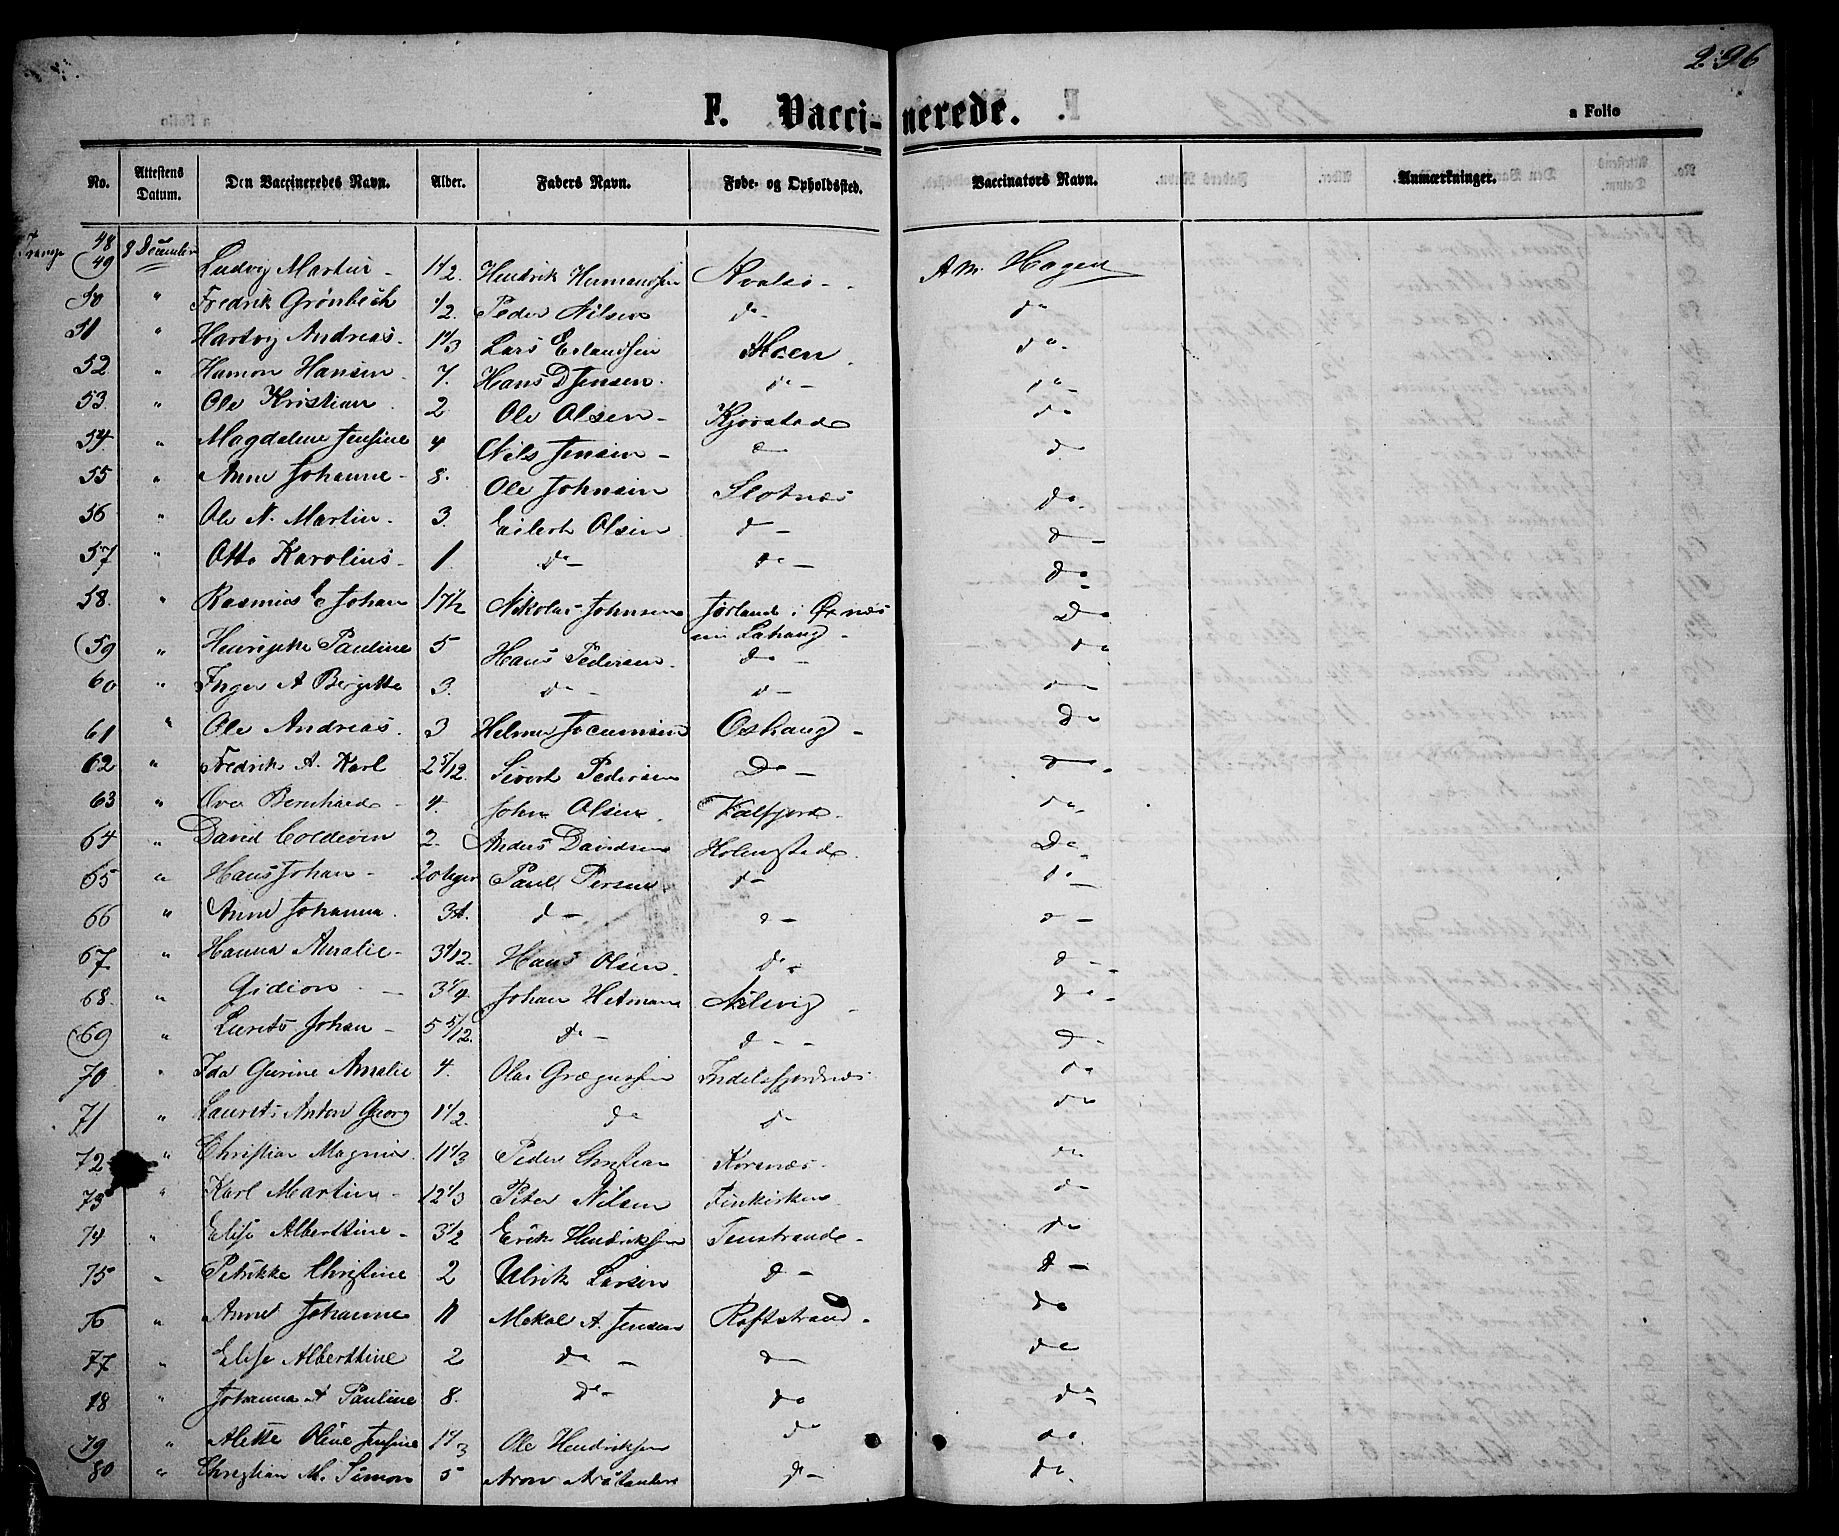 296
F. Vaccinerede.
a Folio
No. Attestens Datum. Den Vaccineredes Navn. Alder. Faders Navn. Føde- og Opholdssted. Vaccinators Navn. Anmærkninger.
48
49 8 December Ludvig Martin - 1 1/2 Hendrik A. M. Hagen
50 " Fredrik Grønbech 1/2 Peder Nilsen do - do
51 " Hartvig Andreas. 1 1/3 Lars Erlandsen Moen do
52 " Hamon Hansen 7. Hans D Jensen. do - do -
53. " Ole Kristian 2 Ole Olsen - Kjørstad do
54. " Magdalene Jensine 4 Nils Jensen - do do
55 " Anne Johanne - 8. Ole Johnsen Slotnæs do
56 " Ole N. Martin - 3. Eilert Olsen do - do -
57 " Otto Karolius - 1. do - do - do
58. " Rasmus E Johan 1 7/12 Nikolai Johnsen Jørland i Øxnæs do
59 " Henrijette Pauline 5 Hans Pedersen - do - do
60 " Inger A Bergitte 3. do - do - do
61 " Ole Andreas. 3 Helmer Jocumsen Oshaug - do
62 " Fredrik A. Karl 2 5/12. Sivert Pedersen Do - do
63 " Over Bernhard - 4. John Olsen. Kalfjord. do
64 " David Coldevin 2. Anders Davidsen Holmstad. Do
65 " Hans Johan - 20 Uger Paul Persen do - do -
66 " Anne Johanna. 3 A. do - do - do -
67 " Hanna Amalie - 3 1/12. Hans Olsen. do do -
68. " Gidion - 3 1/4 Johan Hetman do
69 " Lurits Johan - 5 5/12. do - do - do -
70 " Ida Gurine Amalie 4. Indelsfjordnæs do
71 " Laurits Anton Georg 1 1/2. do do do
72 " Christian Magnus. 11 1/3 Peder Christian Korsnæs. do
73 " Karl Martin - 12 1/3 Peter Nilsen do
74 " Elise Alberttine - 3 1/2 Erik Hendriksen do
75 " Petrikke Christine 2 Ulrik Larsen do - do -
76 " Anne Johanne 11 Mekal A. Jensen Raftstrand. do
77 " Elise Alberttine 2 do - do do
78 " Johanna A Pauline 8. do - do do
79 " Alette Oline Jensine 1 1/3 Ole Hendriksen do do
80 " Christian M. Simon 5 Aron do - do